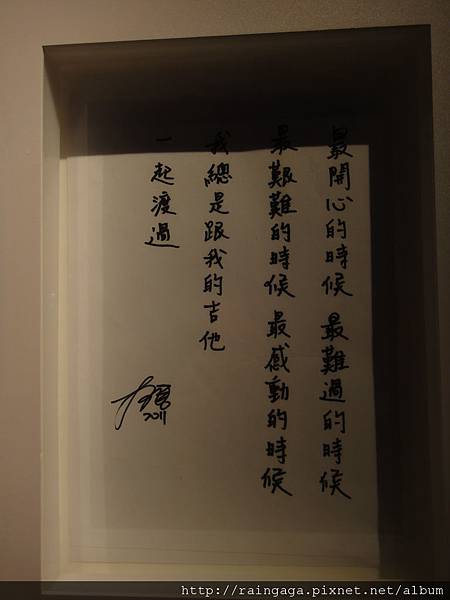 最開心的時候 最難過的時候
最艱難的時候 最感動的時候
我總是跟我的吉他
一起渡過
2011
http://raingaga.pixnet.net/album